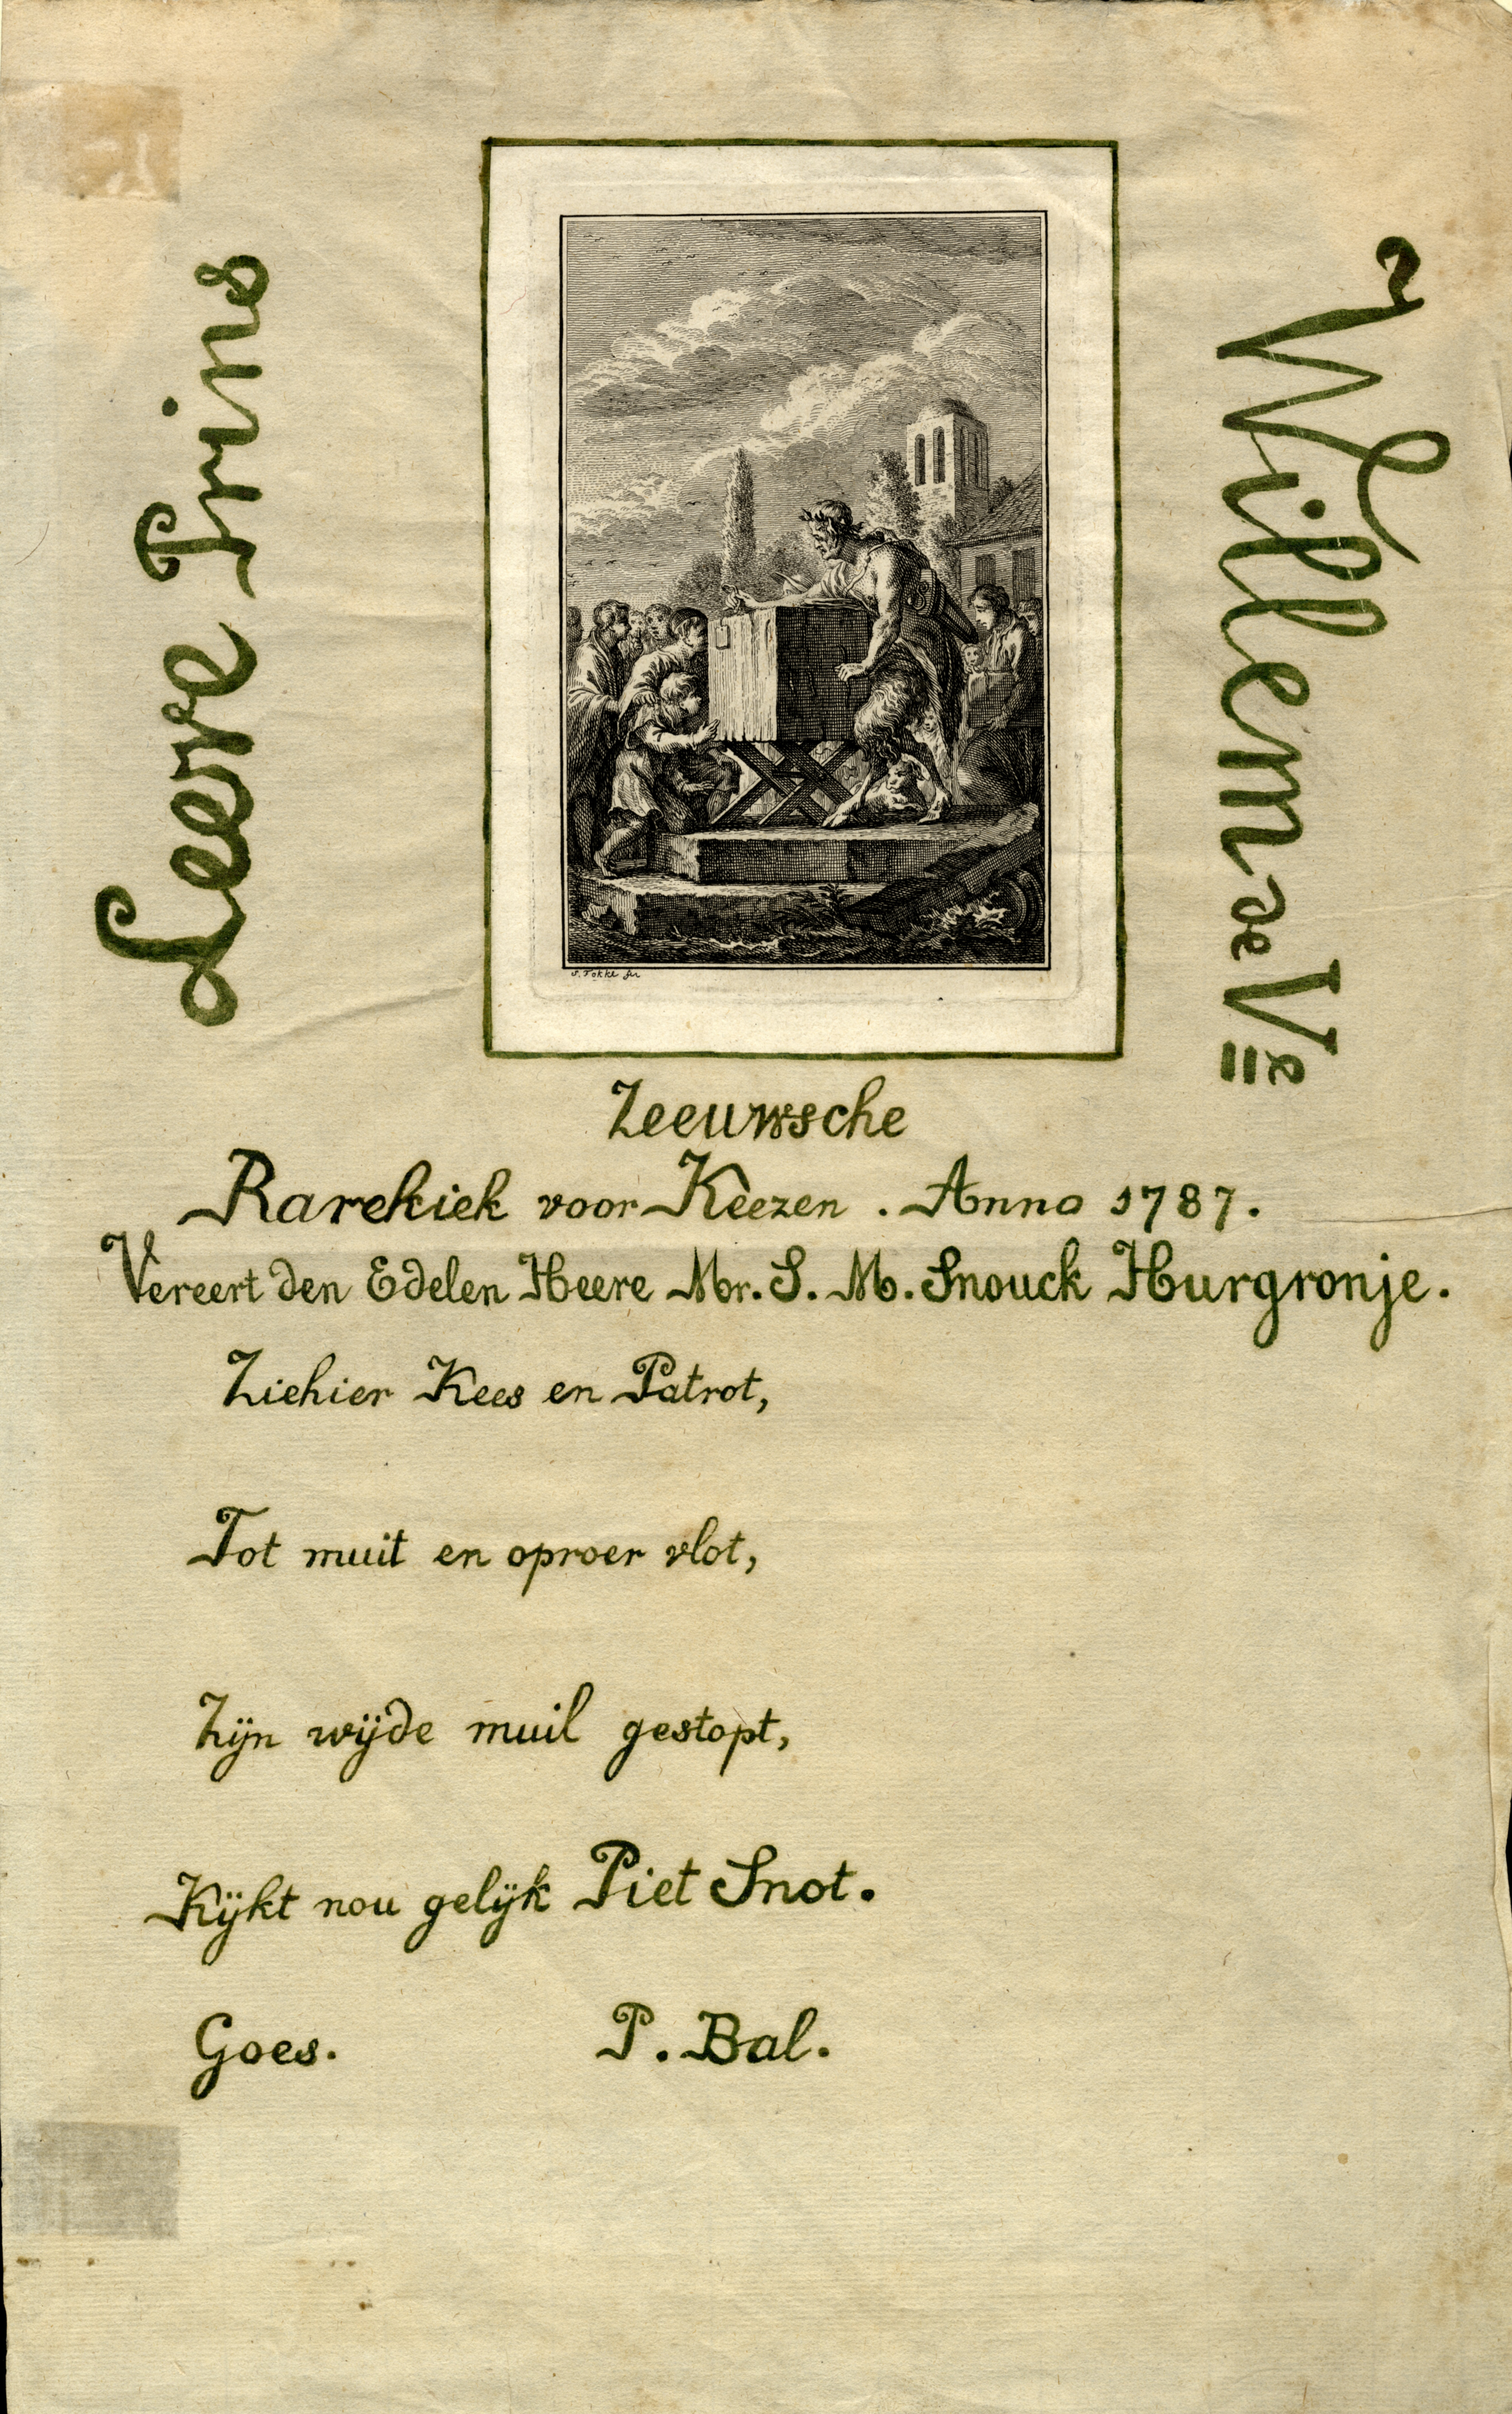 Leeve Prins
Willem de Ve
S. Fokke fec
Zeeuwsche
Rarekiek voor Keezen. Anno 1787.
Vereert den Edelen Heere Mr. S. M. Snouck Hurgronje.
Ziehier Kees en Patrot,
Tot muit en oproer vlot,
Zijn wijde muil gestopt,
Kijkt nou gelijk Piet Snot.
Goes. P. Bal.